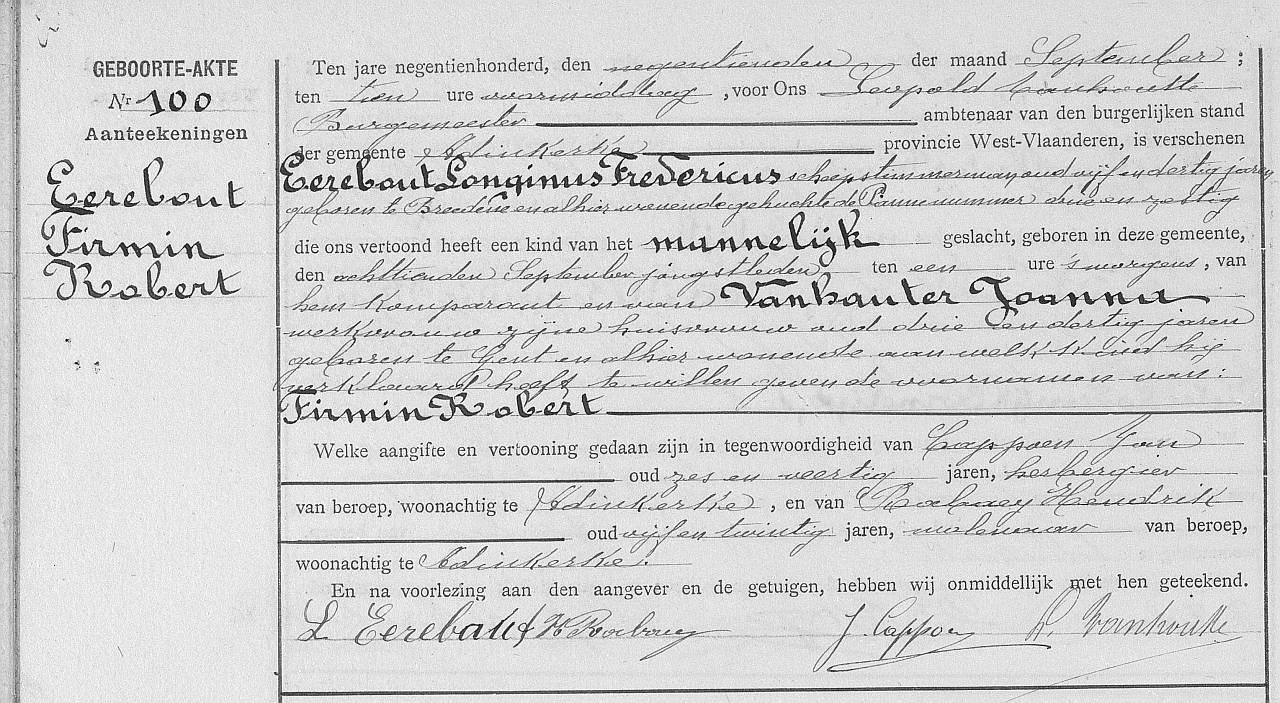 GEBOORTE-AKTE
Nr 100
Aanteekeningen
Eerebout
Firmin
Robert
Ten jare negentienhonderd, den negentienden der maand September ;
ten tien ure voormiddag , voor Ons Leopold Vanhoutte
Burgemeester ambtenaar van den burgerlijken stand
der gemeente Adinkerke provincie West-Vlaanderen, is verschenen
Eerebout Longinus Fredericus scheepstimmerman oud vijf en dertig jaren
geboren te Breedene en alhier wonende gehuchte de Panne nummer drie en zestig
die ons vertoond heeft een kind van het mannelijk geslacht, geboren in deze gemeente,
den achttienden September jongstleden, ten een ure 's morgens , van
hem komparant en van Vanhauter Joanna
werkvrouw zijne huisvrouw oud drie en dertig jaren
geboren te Gent en alhier wonende aan welk kind hij
verklaard heeft te willen geven de voornamen van :
Firmin Robert
Welke aangifte en vertooning gedaan zijn in tegenwoordigheid van Cappoen Jan
oud zes en veertig jaren, herbergier
van beroep, woonachtig te Adinkerke , en van Rabaey Hendrik
oud vijf en twintig jaren, molenaar van beroep,
woonachtig te Adinkerke.
En na voorlezing aan den aangever en de getuigen, hebben wij onmiddellijk met hen geteekend.
L Eerebout H Rabaey J Cappoen L. Vanhoutte